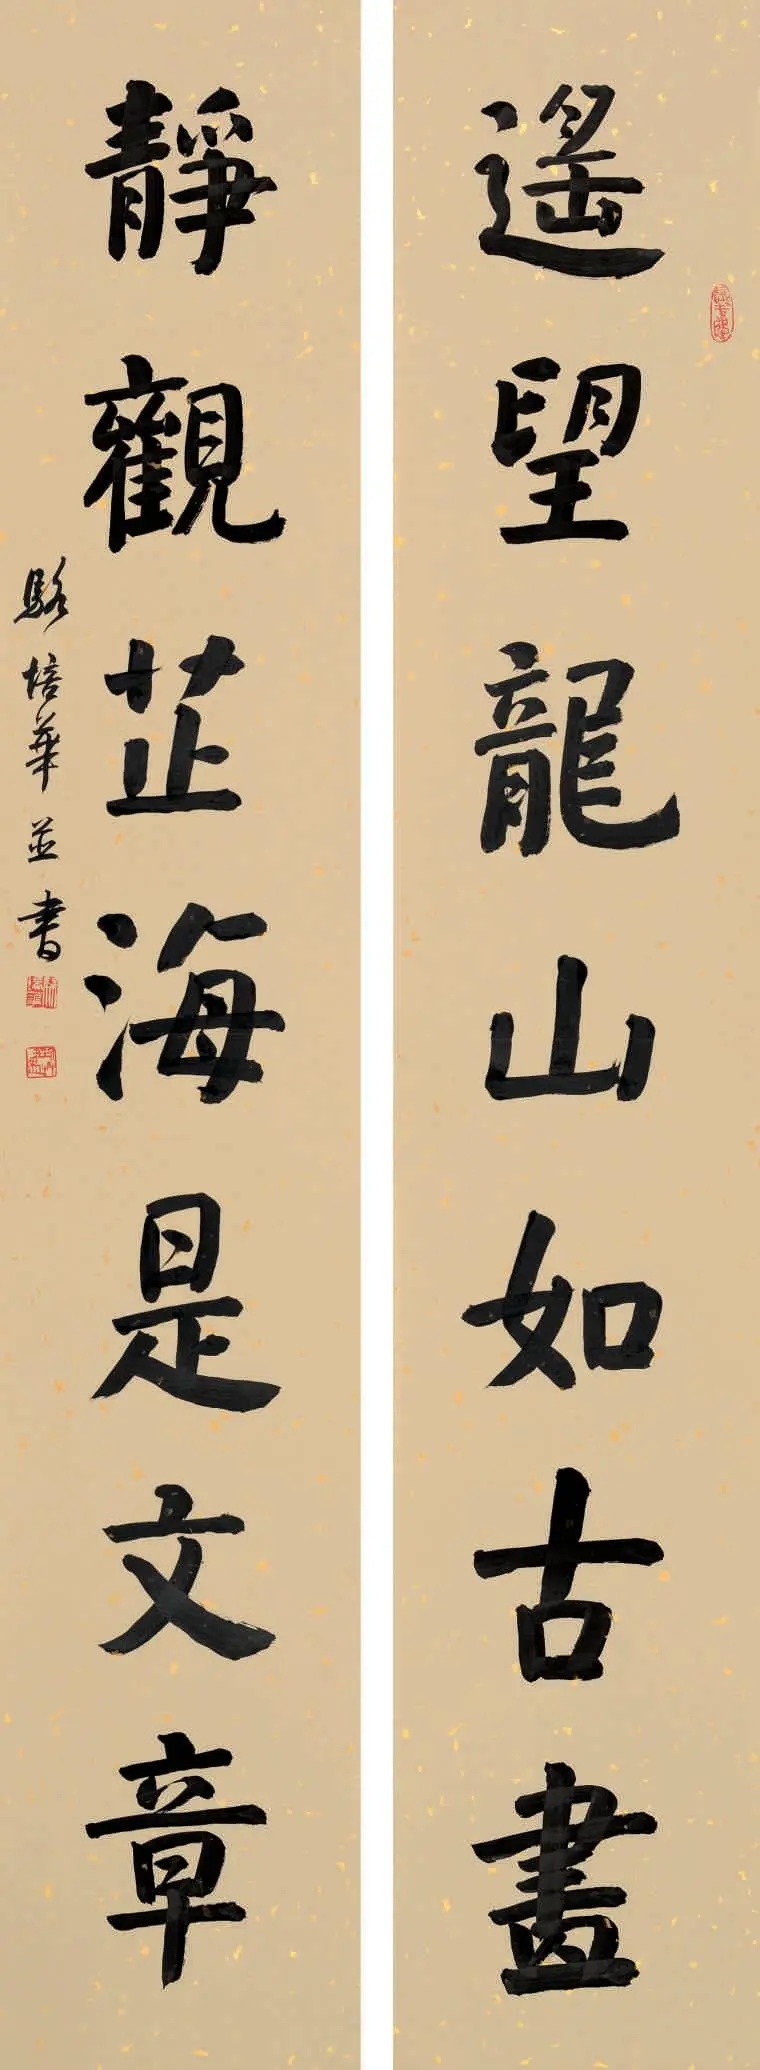 遙望龍山如古畫
靜觀芷海是文章
駱培華並書